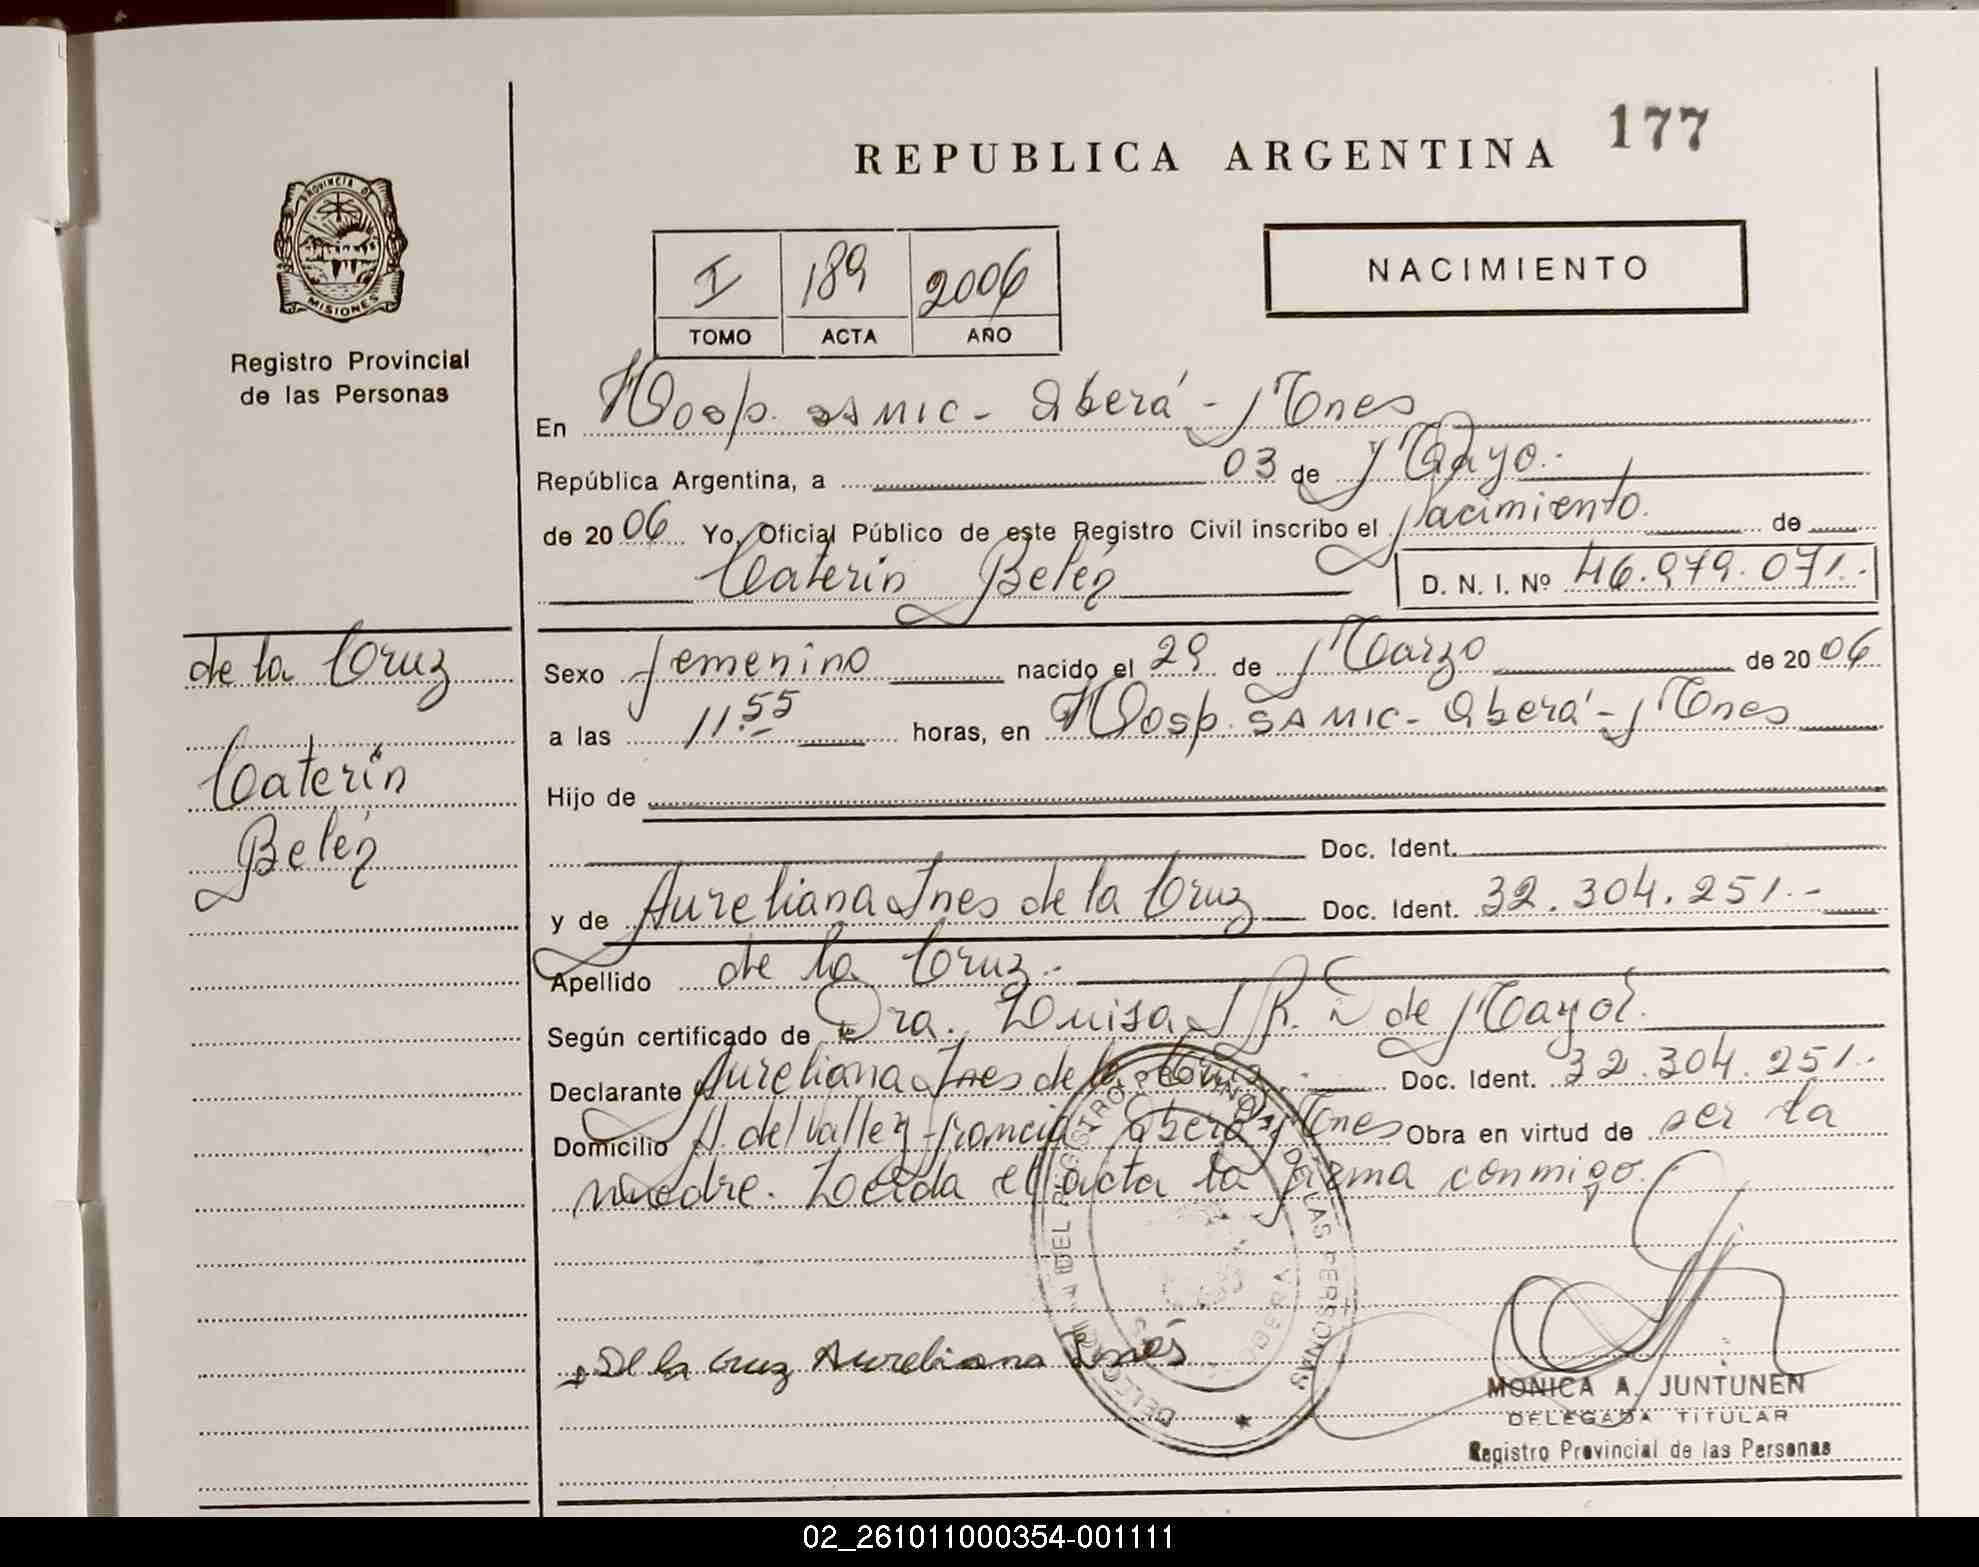 177
REPUBLICA ARGENTINA
PROVINCIA DE
MISIONES
Registro Provincial
de las Personas
I 189 2006
TOMO ACTA AÑO
NACIMIENTO
En Hosp. SAMIC - Oberá - Mnes
República Argentina, a 03 de Mayo.-
de 2006 Yo, Oficial Público de este Registro Civil inscribo el Nacimiento. de
Caterin Belén D. N. I. Nº 46.979.071.-
de la Cruz
Caterin
Belén
Sexo femenino nacido el 29 de Marzo de 2006
a las 11.55 horas, en Hosp. SAMIC - Oberá - Mnes
Hijo de
Doc. Ident.
y de Aureliana Ines de la Cruz Doc. Ident. 32.304.251.-
Apellido de la Cruz.-
Según certificado de Dra. Luisa R. de Mayol.
Declarante Aureliana Ines de la Cruz.- Doc. Ident. 32.304.251.-
Domicilio A. del Valle y Francia Oberá Mnes Obra en virtud de ser la
madre. Leída el acta la firma conmigo.
De la Cruz Aureliana Inés
MONICA A. JUNTUNEN
DELEGADA TITULAR
Registro Provincial de las Personas
DEL REGISTRO PROVINCIAL DE LAS PERSONAS
OBERA
02_261011000354-001111